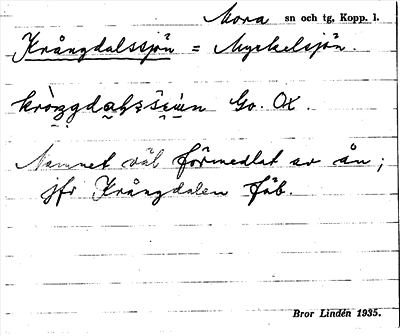 Mora sn och tg, Kopp. l.
Krångdalssjön = Myckelsjön.
Go. OX.
Namnet väl förmedlat av ån;
jfr Krångdalen fäb.
Bror Lindén 1935.